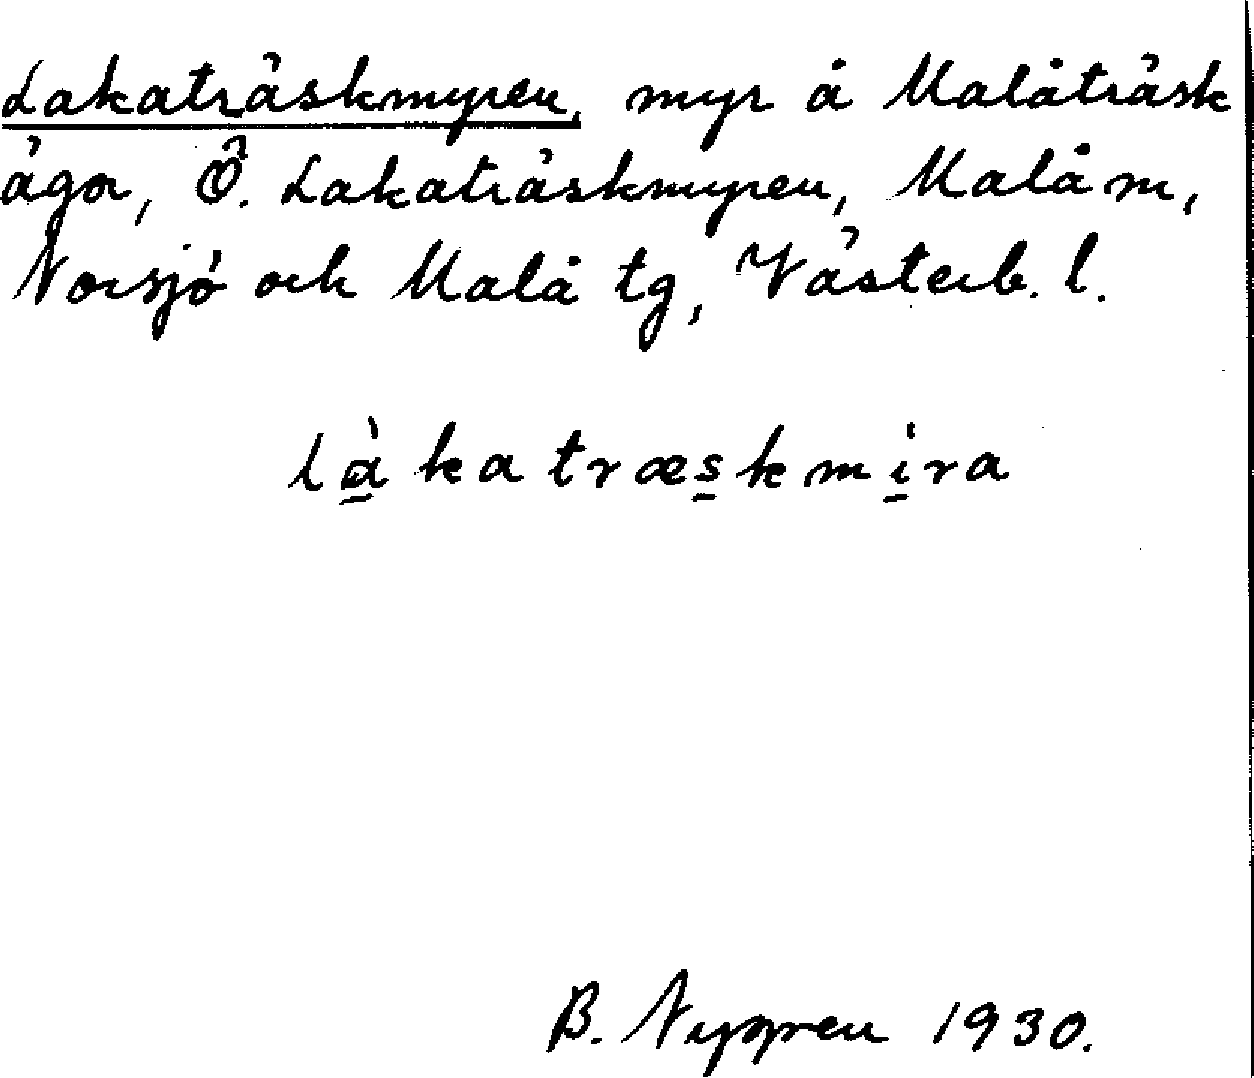 Lakaträskmyren, myr å Malåträsk
ägor, Ö. Lakaträskmyren, Malå m,
Norsjö och Malå tg, Västerb. l.
là̱katræs̱kmí̱ra
B. Nygren 1930.